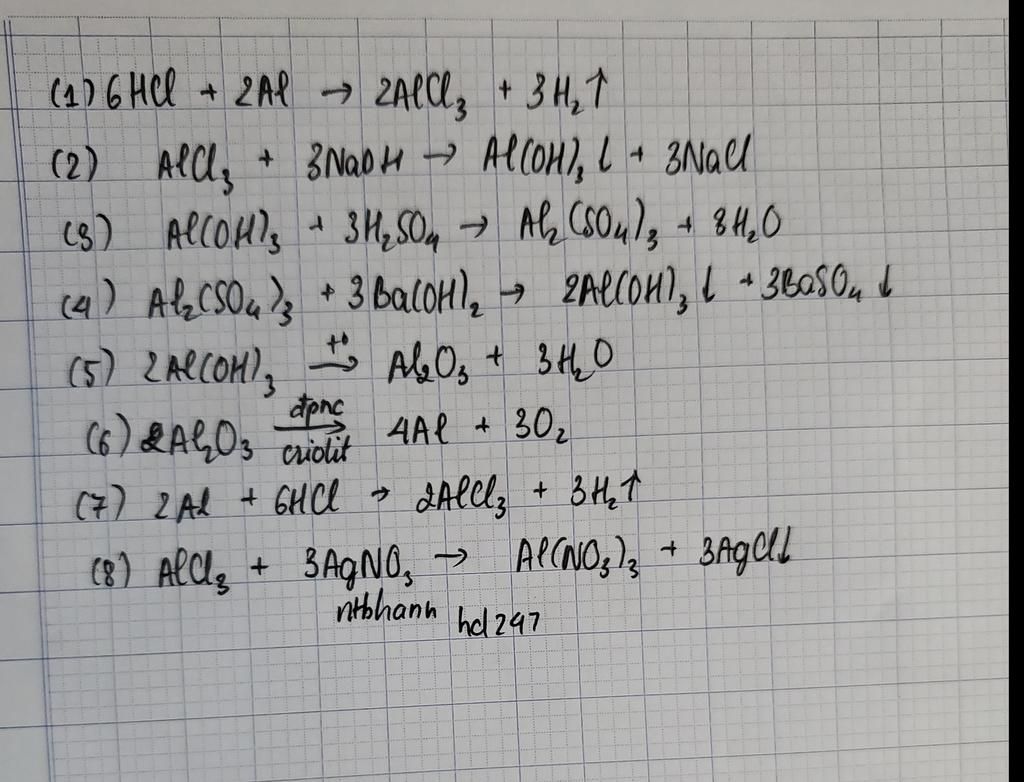 (1) 6HCl + 2Al → 2AlCl₃ + 3H₂↑
(2) AlCl₃ + 3NaOH → Al(OH)₃↓ + 3NaCl
(3) Al(OH)₃ + 3H₂SO₄ → Al₂(SO₄)₃ + 3H₂O
(4) Al₂(SO₄)₃ + 3Ba(OH)₂ → 2Al(OH)₃↓ + 3BaSO₄↓
(5) 2Al(OH)₃ —t°→ Al₂O₃ + 3H₂O
(6) 2Al₂O₃ —đpnc/criolit→ 4Al + 3O₂
(7) 2Al + 6HCl → 2AlCl₃ + 3H₂↑
(8) AlCl₃ + 3AgNO₃ → Al(NO₃)₃ + 3AgCl↓
ntbhanh hd247